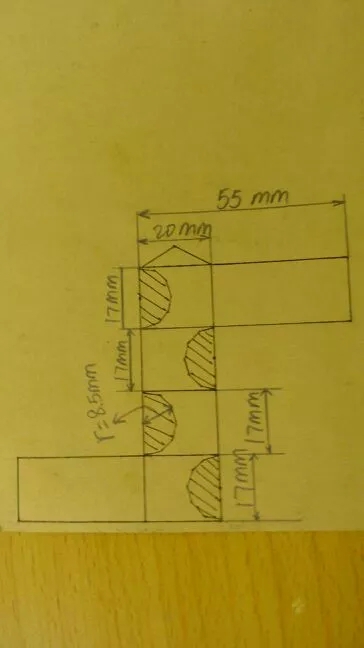 55 mm
20 mm
17mm
17mm
r=8.5mm
17mm
17mm